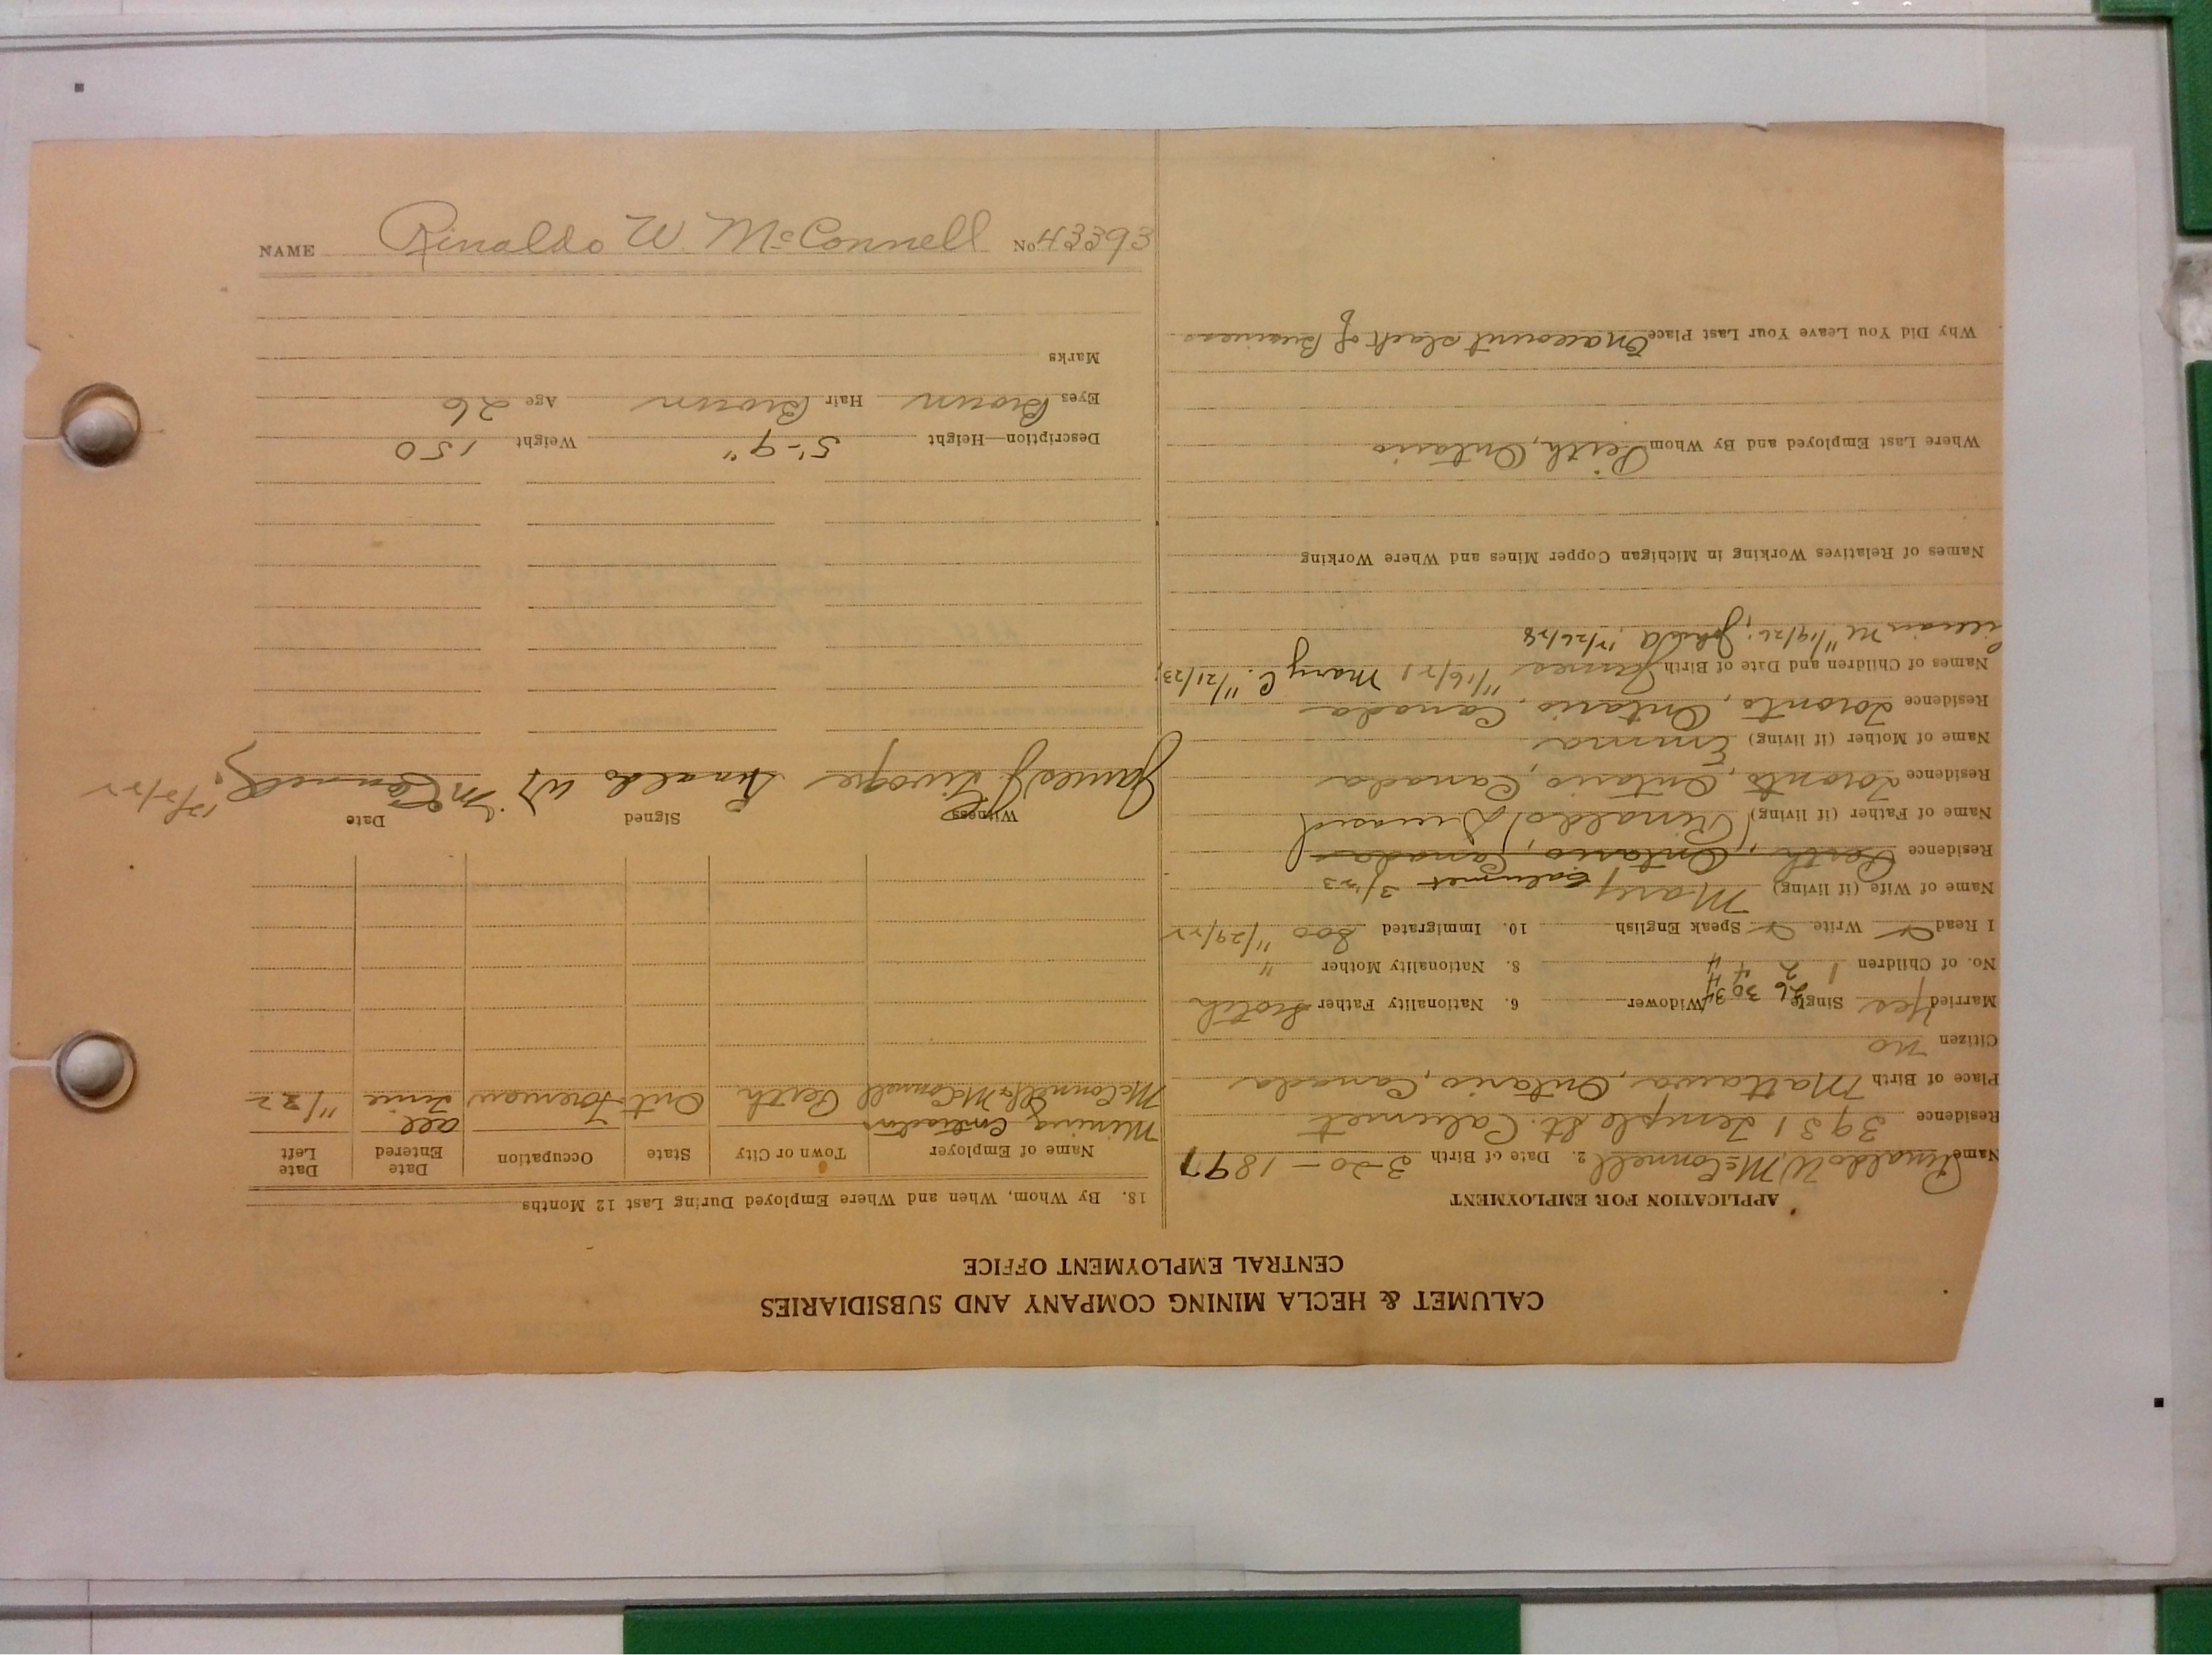 CALUMET & HECLA MINING COMPANY AND SUBSIDIARIES
CENTRAL EMPLOYMENT OFFICE
APPLICATION FOR EMPLOYMENT
Name Rinaldo W. McConnell 2. Date of Birth 3-20-1897
Residence 3931 Temple St. Calumet
Place of Birth Mattawa, Ontario, Canada
Citizen no
Married Yes Single Widower 6. Nationality Father Scotch
26 30 34
No. of Children 1 2 4 4 8. Nationality Mother "
I Read Write Speak English 10. Immigrated Soo 11/29/22
Name of Wife (if living) Mary Calumet 3/23
Residence Perth, Ontario, Canada
Name of Father (if living) (Rinaldo) Deceased
Residence Toronto, Ontario, Canada
Name of Mother (if living) Emma
Residence Toronto, Ontario, Canada
Names of Children and Date of Birth James 11/16/21 Mary C. 11/21/23;
M 11/19/26;
Names of Relatives Working in Michigan Copper Mines and Where Working
Where Last Employed and By Whom Perth, Ontario
Why Did You Leave Your Last Place On account slack of Business
18. By Whom, When and Where Employed During Last 12 Months
Name of Employer Town or City State Occupation Date Entered Date Left
Mining Contractors
McConnell & McConnell Perth Ont Foreman all time 11/22
Witness Signed Date
James J. Rinaldo W. McConnell. 12/2/22
Description—Height 5'-9" Weight 150
Eyes Brown Hair Brown Age 26
Marks
NAME Rinaldo W. McConnell No. 43393